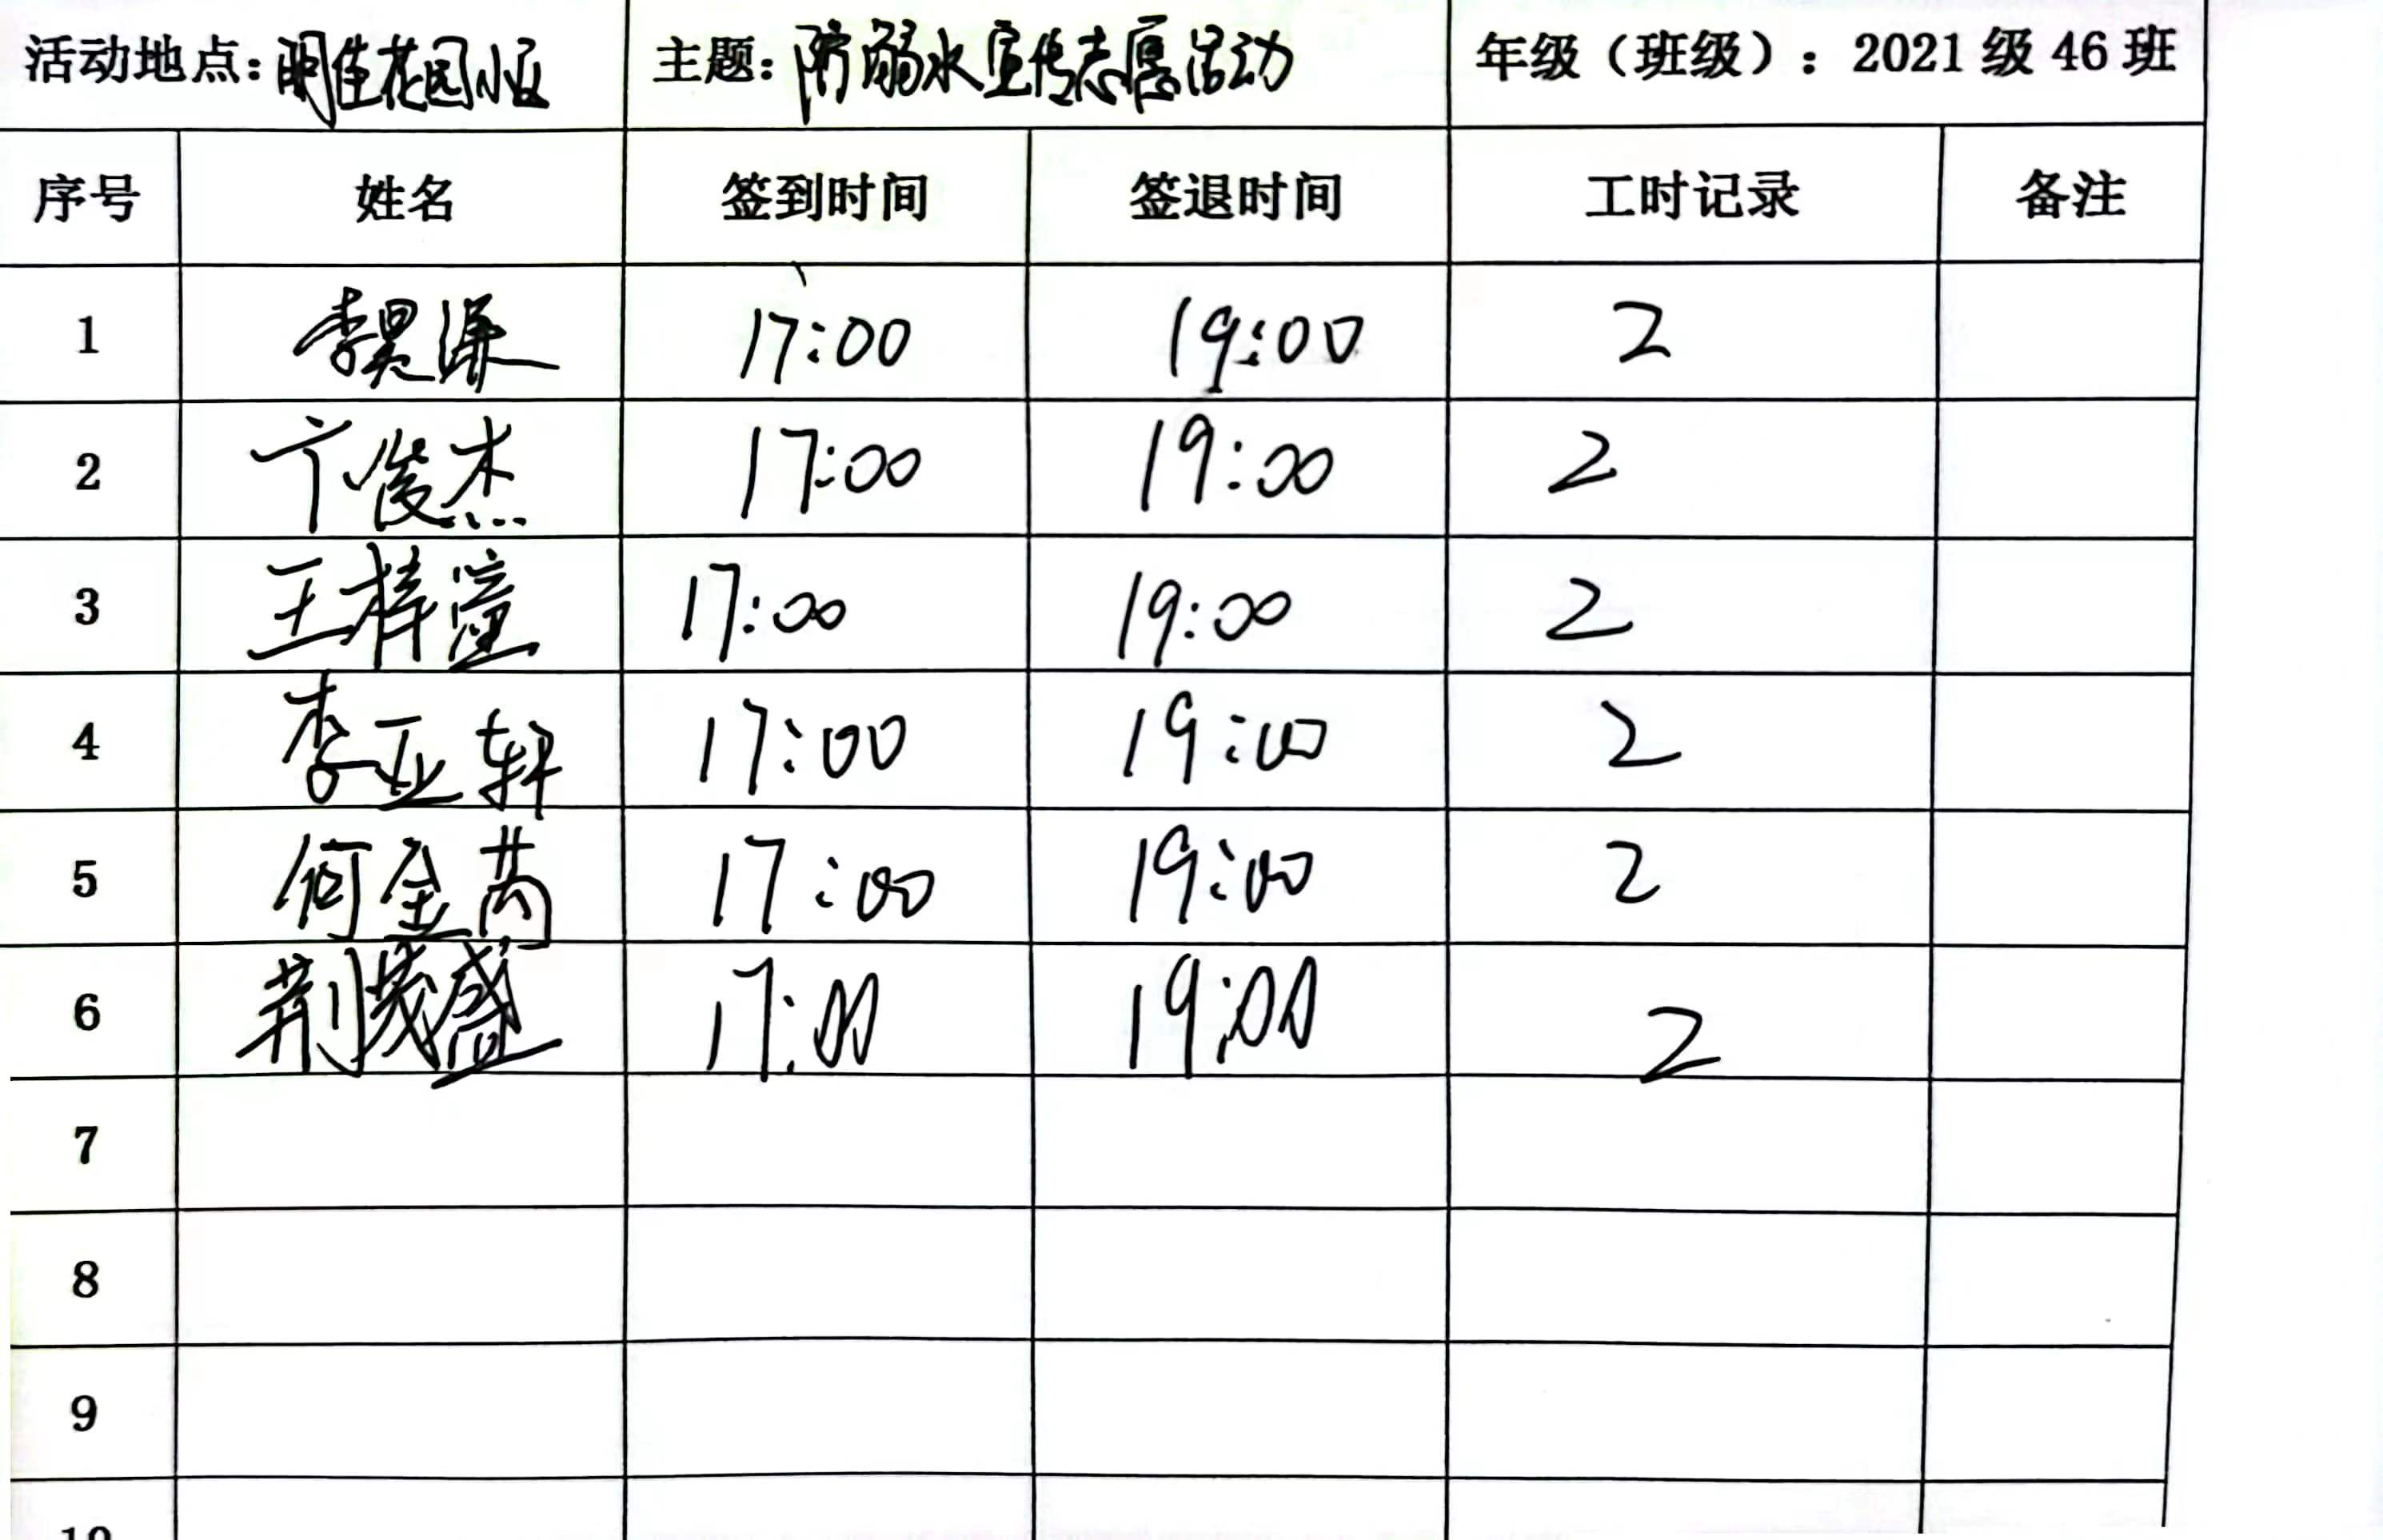 活动地点：明佳花园小区 主题：防溺水宣传志愿活动 年级（班级）：2021级46班
序号 姓名 签到时间 签退时间 工时记录 备注
1 李昊谦 17:00 19:00 2
2 卞俊杰 17:00 19:00 2
3 王梓滢 17:00 19:00 2
4 李亚轩 17:00 19:00 2
5 何金芮 17:00 19:00 2
6 荆茂盛 17:00 19:00 2
7
8
9
10